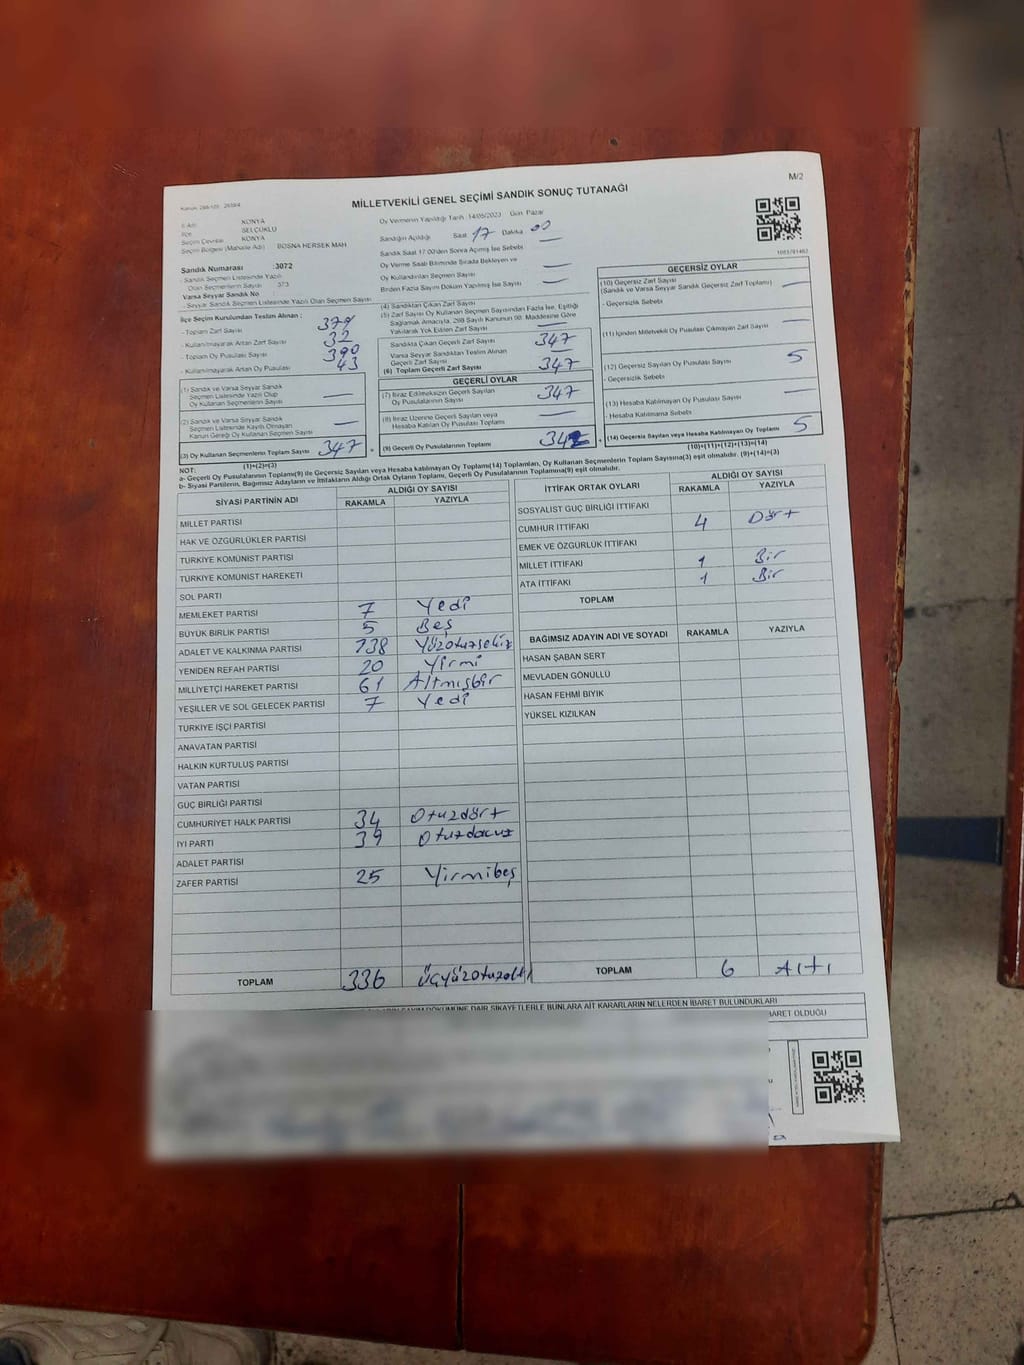 M/2
MİLLETVEKİLİ GENEL SEÇİMİ SANDIK SONUÇ TUTANAĞI
İl Adı KONYA
İlçe SELÇUKLU
Seçim Çevresi KONYA
Seçim Bölgesi (Mahalle Adı) BOSNA HERSEK MAH
Sandık Numarası :3072
- Sandık Seçmen Listesinde Yazılı
Olan Seçmenlerin Sayısı : 373
Varsa Seyyar Sandık No :
- Seyyar Sandık Seçmen Listesinde Yazılı Olan Seçmen Sayısı
Oy Vermenin Yapıldığı Tarih 14/05/2023 Gün Pazar
Sandığın Açıldığı Saat 17 Dakika 00
Sandık Saat 17:00'den Sonra Açılmış İse Sebebi
Oy Verme Saati Bitiminde Sırada Bekleyen ve
Oy Kullandırılan Seçmen Sayısı
Birden Fazla Sayım Döküm Yapılmış İse Sayısı
İlçe Seçim Kurulundan Teslim Alınan :
- Toplam Zarf Sayısı 379
- Kullanılmayarak Artan Zarf Sayısı 32
- Toplam Oy Pusulası Sayısı 390
- Kullanılmayarak Artan Oy Pusulası 43
(1) Sandık ve Varsa Seyyar Sandık
Seçmen Listesinde Yazılı Olup
Oy Kullanan Seçmenlerin Sayısı
(2) Varsa Sandık ve Seyyar Sandık
Seçmen Listesinde Kayıtlı Olmayan
Kanun Gereği Oy Kullanan Seçmen Sayısı
(3) Oy Kullanan Seçmenlerin Toplam Sayısı 347
(1)+(2)=(3)
(4) Sandıktan Çıkan Zarf Sayısı
(5) Zarf Sayısı Oy Kullanan Seçmen Sayısından Fazla İse, Eşitliği
Sağlamak Amacıyla, 298 Sayılı Kanunun 98. Maddesine Göre
Yakılarak Yok Edilen Zarf Sayısı
Sandıkta Çıkan Geçerli Zarf Sayısı 347
Varsa Seyyar Sandıktan Teslim Alınan
Geçerli Zarf Sayısı
(6) Toplam Geçerli Zarf Sayısı 347
GEÇERLİ OYLAR
(7) İtiraz Edilmeksizin Geçerli Sayılan
Oy Pusulalarının Sayısı 347
(8) İtiraz Üzerine Geçerli Sayılan veya
Hesaba Katılan Oy Pusulası Toplamı
(9) Geçerli Oy Pusulalarının Toplamı 342
GEÇERSİZ OYLAR
(10) Geçersiz Zarf Sayısı
(Sandık ve Varsa Seyyar Sandık Geçersiz Zarf Toplamı)
- Geçersizlik Sebebi
(11) İçinden Milletvekili Oy Pusulası Çıkmayan Zarf Sayısı
(12) Geçersiz Sayılan Oy Pusulası Sayısı 5
- Geçersizlik Sebebi
(13) Hesaba Katılmayan Oy Pusulası Sayısı
- Hesaba Katılmama Sebebi
(14) Geçersiz Sayılan veya Hesaba Katılmayan Oy Toplamı 5
(10)+(11)+(12)+(13)=(14)
NOT:
a- Geçerli Oy Pusulalarının Toplamı(9) ile Geçersiz Sayılan veya Hesaba katılmayan Oy Toplamı(14) Toplamları, Oy Kullanan Seçmenlerin Toplam Sayısına(3) eşit olmalıdır. (9)+(14)=(3)
b- Siyasi Partilerin, Bağımsız Adayların ve İttifakların Aldığı Ortak Oyların Toplamı, Geçerli Oy Pusulalarının Toplamına(9) eşit olmalıdır.
SİYASİ PARTİNİN ADI ALDIĞI OY SAYISI
RAKAMLA YAZIYLA
MİLLET PARTİSİ
HAK VE ÖZGÜRLÜKLER PARTİSİ
TÜRKİYE KOMÜNİST PARTİSİ
TÜRKİYE KOMÜNİST HAREKETİ
SOL PARTİ
MEMLEKET PARTİSİ 7 Yedi
BÜYÜK BİRLİK PARTİSİ 5 Beş
ADALET VE KALKINMA PARTİSİ 138 Yüzotuzsekiz
YENİDEN REFAH PARTİSİ 20 Yirmi
MİLLİYETÇİ HAREKET PARTİSİ 61 Altmışbir
YEŞİLLER VE SOL GELECEK PARTİSİ 7 Yedi
TÜRKİYE İŞÇİ PARTİSİ
ANAVATAN PARTİSİ
HALKIN KURTULUŞ PARTİSİ
VATAN PARTİSİ
GÜÇ BİRLİĞİ PARTİSİ
CUMHURİYET HALK PARTİSİ 34 Otuzdört
İYİ PARTİ 39 Otuzdokuz
ADALET PARTİSİ
ZAFER PARTİSİ 25 Yirmibeş
TOPLAM 336 Üçyüzotuzaltı
İTTİFAK ORTAK OYLARI ALDIĞI OY SAYISI
RAKAMLA YAZIYLA
SOSYALİST GÜÇ BİRLİĞİ İTTİFAKI
CUMHUR İTTİFAKI 4 Dört
EMEK VE ÖZGÜRLÜK İTTİFAKI
MİLLET İTTİFAKI 1 Bir
ATA İTTİFAKI 1 Bir
TOPLAM
BAĞIMSIZ ADAYIN ADI VE SOYADI RAKAMLA YAZIYLA
HASAN ŞABAN SERT
MEVLADEN GÖNÜLLÜ
HASAN FEHMİ BIYIK
YÜKSEL KIZILKAN
TOPLAM 6 Altı
DÖKÜMÜNE DAİR ŞİKAYETLERLE BUNLARA AİT KARARLARIN NELERDEN İBARET BULUNDUKLARI
BARET OLDUĞU